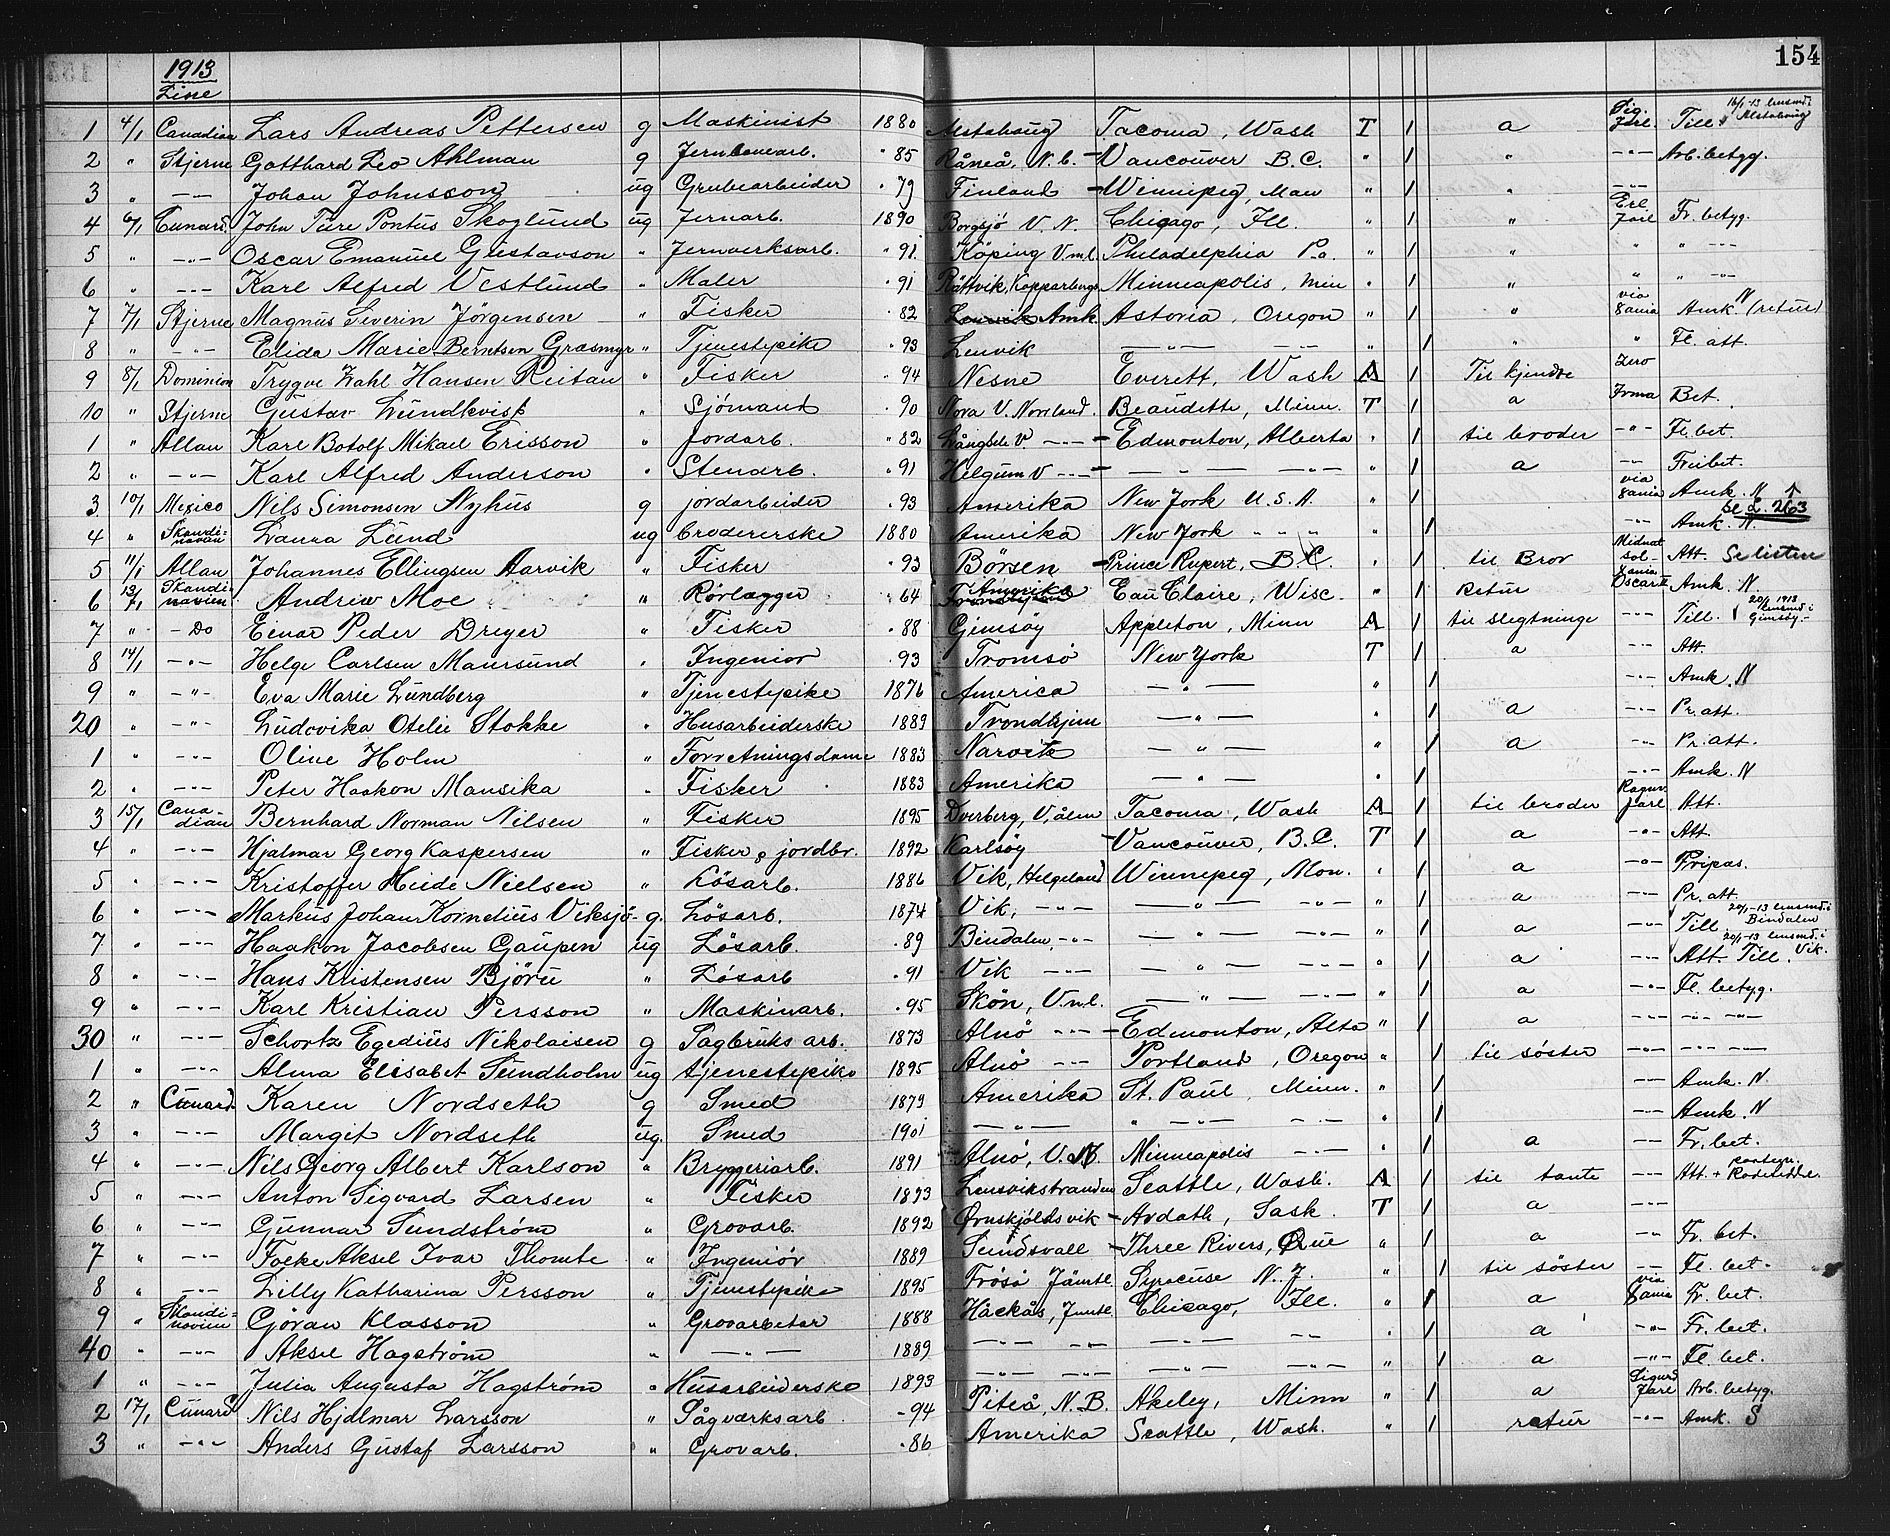 154
1913
Line
1 4/1 Canadian Lars Andreas Pettersen g Maskinist 1880 Alstahaug Tacoma, Wash T 1 a Sig. Jarl. Till. 16/1-13 lensmd. i Alstahaug
2 " Stjerne Gotthard Leo Ahlman g Jernbanearb. " 85 Råneå, N.b. - Vancouver B.C. " 1 " -"- Arb. betyg.
3 " -"- Johan Johnsson ug Grubearbeider " 79 Finland - Winnipeg, Man " 1 " -"-
4 6/1 Cunard John Ture Pontus Skoglund ug Jernarb. 1890 Borgsjö V.N. Chicago, Ill. " 1 " Erl. Jarl Fr. betyg.
5 " -"- Oscar Emanuel Gustavson " Jernverksarb. " 91 Köping V.ml. Philadelphia Pa. " 1 " " " -"-
6 " -"- Karl Alfred Vestlund " Maler " 91 Rättvik, Kopparbergs Minneapolis, Min " 1 " " " -"-
7 7/1 Stjerne Magnus Siverin Jörgensen " Fisker " 82 Lenvik Amk. Astoria, Oregon " 1 " via Xania Amk. N (retur)
8 " -"- Elida Marie Berntsen Grasmyr " Tjenestepike " 93 Lenvik -"- -"- " 1 " " Fl. att.
9 8/1 Dominion Trygve Zahl Hansen Reitan " Fisker " 94 Nesne Everett, Wash A 1 Til kjendte Zero
10 " Stjerne Gustav Lundkvist " Sjömand " 90 Nora V. Norrland. Beaudette, Minn. T 1 a Irma Bet.
1 " Allan Karl Botolf Mikael Erisson " Jordarb. " 82 Långsele V. -"- - Edmonton, Alberta " 1 til broder -"- Fl. bet.
2 " -"- Karl Alfred Anderson " Stenarb. " 91 Helgum V -"- - -"- -"- " 1 a -"- Freibet.
3 10/1 Mexico Nils Simonsen Nyhus g jordarbeider " 93 Amerika New York U.S.A. " 1 via Xania Amk. N
4 " Skandinavien Laura Lund ug brodererske 1880 Amerika New York " " " " 1 -"- Amk. N. se L. 263
5 11/1 Allan Johannes Ellingsen Aarvik " Fisker " 93 Börsen - Prince Rupert, B.C. " 1 til Bror Midnatsol Att. Se listen
6 13/1 Skandinavien Andrew Moe " Rörlægger " 64 Amerika Eau Claire, Wisc. " 1 Retur Xania Oscar II Amk. N.
7 " - Do Einar Peder Dreyer " Fisker " 88 Gimsøy Appleton, Minn A 1 til slegtninge -"- Till. 20/1 1913 lensmd. i Gimsøy.
8 14/1 -"- Helge Carlsen Maursund " Ingeniør " 93 Tromsö New York T 1 a -"- Att.
9 " -"- Eva Marie Lundberg " Tjenestepike 1876 America -"- " 1 -"- Amk. N
20 " -"- Ludovika Otelie Stokke " Husarbeiderske 1889 Trondhjem -"- " 1 a -"- Pr. att.
1 " -"- Oline Holm " Forretningsdame 1883 Narvik -"- " 1 a -"- Pr. att.
2 " -"- Peter Haakon Mansika " Fisker 1883 Amerika -"- " 1 -"- Amk. N
3 15/1 Canadian Bernhard Norman Nilsen " Fisker 1895 Dverberg, V.ålen Tacoma, Wash A 1 til broder Ragnv. Jarl Att.
4 " -"- Hjalmar Georg Kaspersen " Fisker & jordbr. 1892 Karlsöy - Vancouver, B.C. T 1 a -"- Att.
5 " -"- Kristoffer Heide Nielsen " Lösarb. 1886 Vik, Helgeland Winnepeg, Mon. " 1 a -"- Fripas.
6 " -"- Markus Johan Kornelius Viksjö g. Lösarb. 1874 Vik, -"- -"- -"- " 1 a -"- Pr. att.
7 " -"- Haakon Jacobsen Gaupen ug Lösarb. " 89 Bindalen -"- -"- -"- " 1 a -"- Till. 20/1-13 lensmd. i Bindalen
8 " -"- Hans Kristensen Björu " Lösarb " 91 Vik -"- -"- -"- " 1 a -"- Att - Till. 20/1-13 lensmd. i Vik.
9 " -"- Karl Kristian Persson " Maskinarb. " 95 Skön, V.nl. -"- -"- " 1 a -"- Fl. betyg.
30 " -"- Schortz Egedius Nikolaisen g Sagbruks arb. 1873 Alnö -"- - Edmonton, Alta " 1 a -"- -"- -"-
1 " -"- Alma Elisabet Sundholm ug tjenestepike 1895 Alnö -"- Portland, Oregon " 1 til söster -"- -"- -"-
2 " Cunard Karen Nordseth g Smed 1879 Amerika St. Paul, Minn. " 1 -"- Amk. N.
3 " -"- Margit Nordseth ug. Smed 1901 -"- " -"- " 1 -"- Amk. N
4 " -"- Nils Georg Albert Karlson " Bryggeriarb. 1891 Alnö, V.N. Minneapolis -"- " 1 a -"- Fr. bet.
5 " -"- Anton Sigvard Larsen " Fisker 1893 Lensvikstranden Seattle, Wash. A 1 til tante -"- Att +
6 " -"- Gunnar Sundström " Grovarb. 1892 Örnskjöldsvik - Ardath, Sask. T 1 a -"-
7 " -"- Folke Aksel Ivar Thomte " Ingeniör 1889 Sundsvall - Three Rivers, Que " 1 a -"- Fr. bet.
8 " -"- Lilly Katharina Persson " Tjenestepike 1895 Frösö Jämtl. Syracuse N.J. " 1 til söster -"- Fl. bet.
9 " Skandinavien Göran Klasson " Grovarbeter 1888 Hackås, Jämtl. Chicago, Ill. " 1 a via Xania Fr. bet.
40 " -"- Aksel Hagström " -"- 1889 -"- -"- -"- -"- " 1 a -"- Fr. bet.
1 " -"- Julia Augusta Hagström " Husarbeiderske 1893 -"- -"- -"- -"- " 1 a -"- Fl. bet.
2 17/1 Cunard Nils Hjalmar Larsson " Sågværksarb - 94 Piteå, N.B. Akeley, Minn " 1 a Sigurd Jarl Arb. betyg.
3 " -"- Anders Gustaf Larsson " Grovarb. " 86 Amerika Seattle, Wash. " 1 retur -"- Amk. S